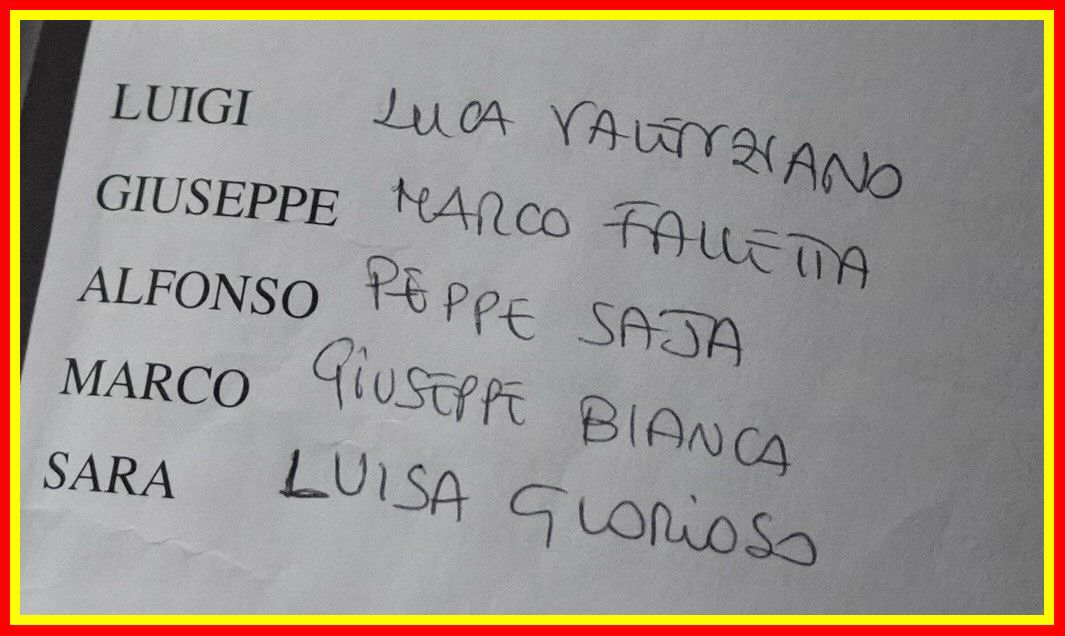 LUIGI LUCA VALENZIANO
GIUSEPPE MARCO FALLETTA
ALFONSO PEPPE SAJA
MARCO GIUSEPPE BIANCA
SARA LUISA GLORIOSO